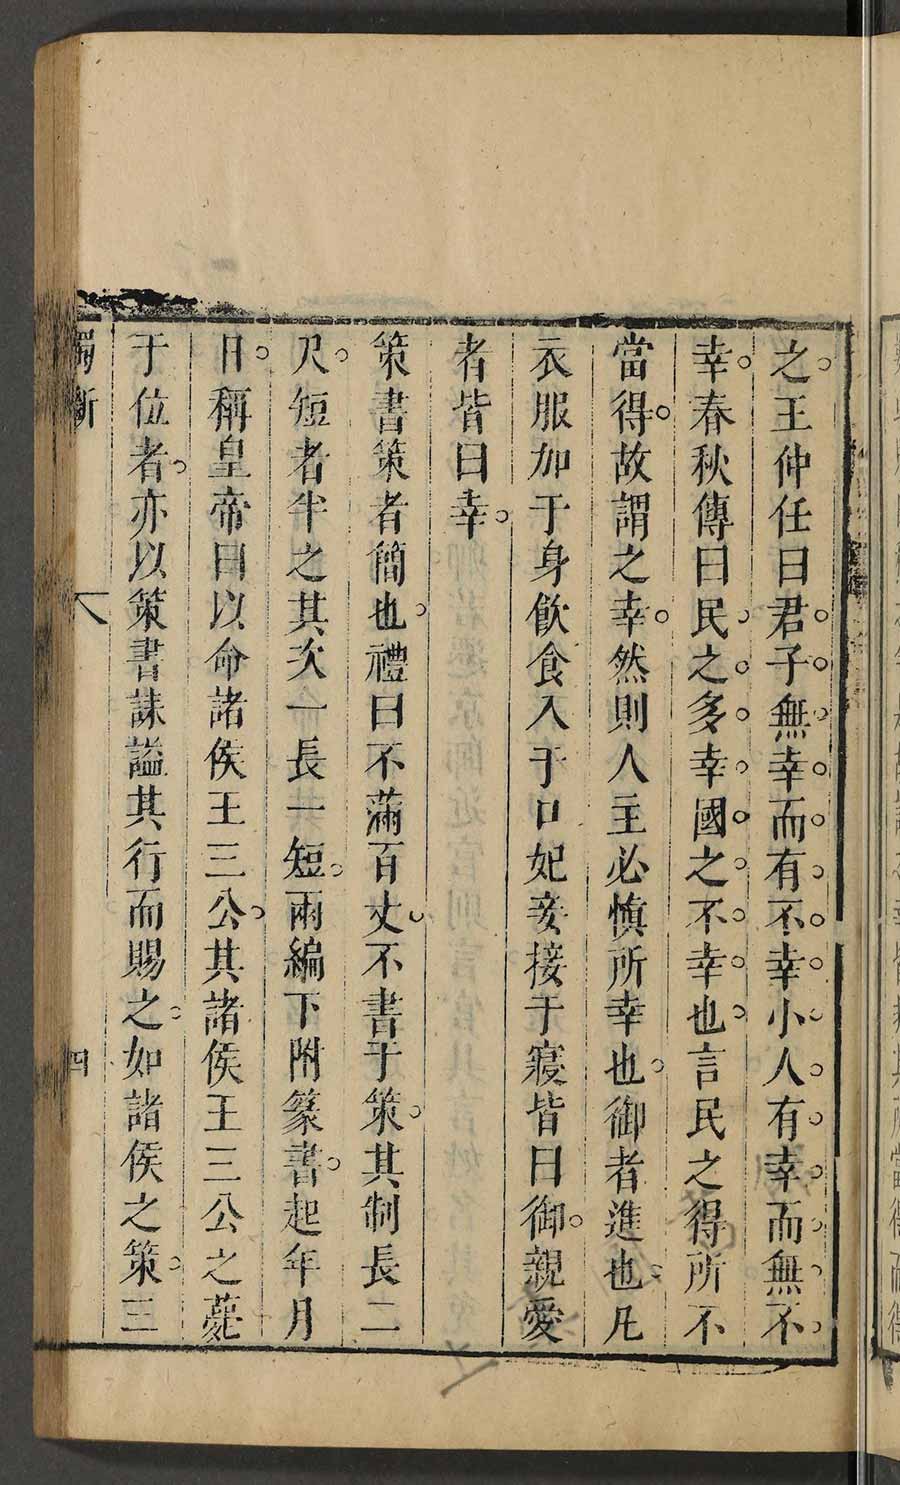 之王仲任曰君子無幸而有不幸小人有幸而無不
幸春秋傳曰民之多幸國之不幸也言民之得所不
當得故謂之幸然則人主必慎所幸也御者進也凡
衣服加于身飲食入于口妃妾接于寢皆曰御親愛
者皆曰幸
策書策者簡也禮曰不滿百丈不書于策其制長二
尺短者半之其次一長一短兩編下附篆書起年月
日稱皇帝曰以命諸侯王三公其諸侯王三公之薨
于位者亦以策書誄謚其行而賜之如諸侯之策三
獨斷 四